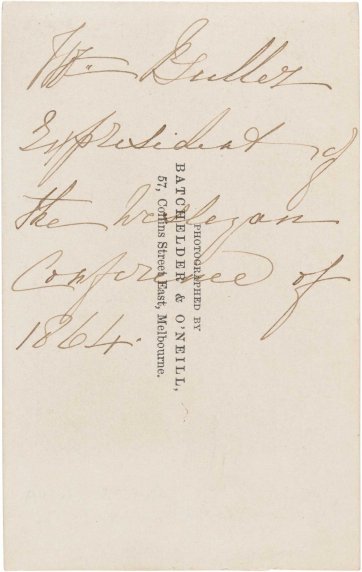 Wm
Expresident of
the Wesleyan
Conference of
1864.
PHOTOGRAPHED BY
BATCHELDER & O'NEILL,
57, Collins Street East, Melbourne.